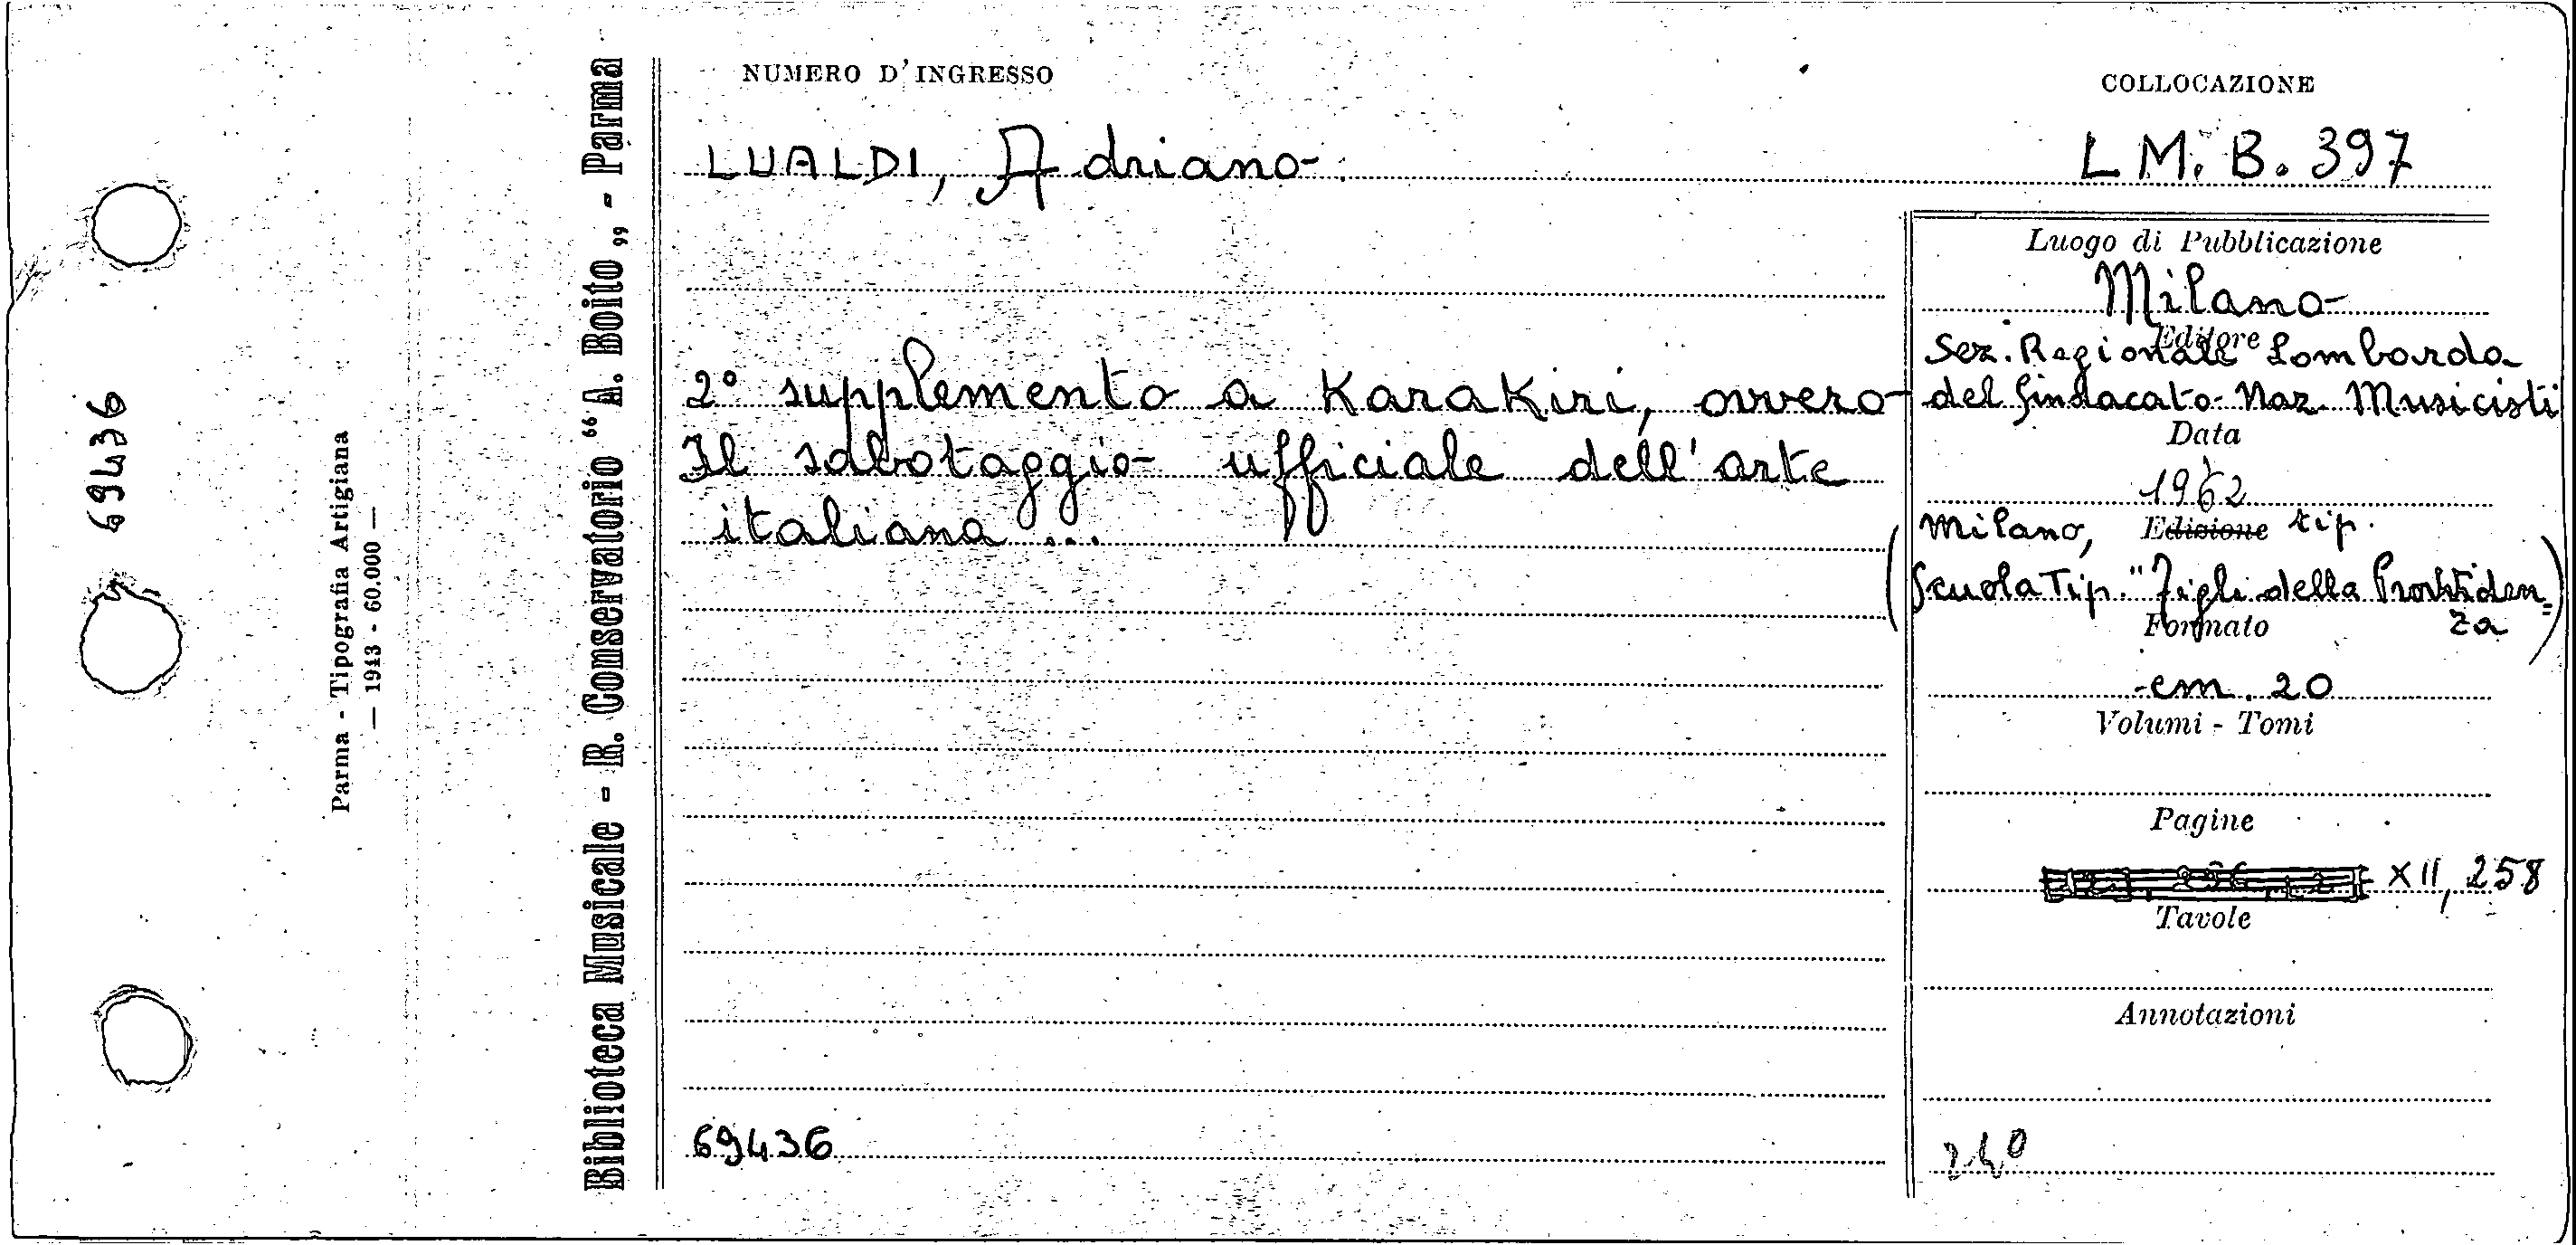 69436
Parma - Tipografia Artigiana
— 1943 - 60.000 —
Biblioteca Musicale - R. Conservatorio "A. Boito" - Parma
NUMERO D'INGRESSO
LUALDI, Adriano
2° supplemento a Karakiri, ovvero
Il sabotaggio ufficiale dell'arte
italiana ...
69436
COLLOCAZIONE
L M. B. 397
Luogo di Pubblicazione
Milano
Editore
Sez. Regionale Lombarda
del Sindacato Naz. Musicisti
Data
1962
Milano, Edizione tip.
(Scuola Tip. "Figli della Provviden=
za)
Formato
cm. 20
Volumi - Tomi
Pagine
XII, 258
Tavole
Annotazioni